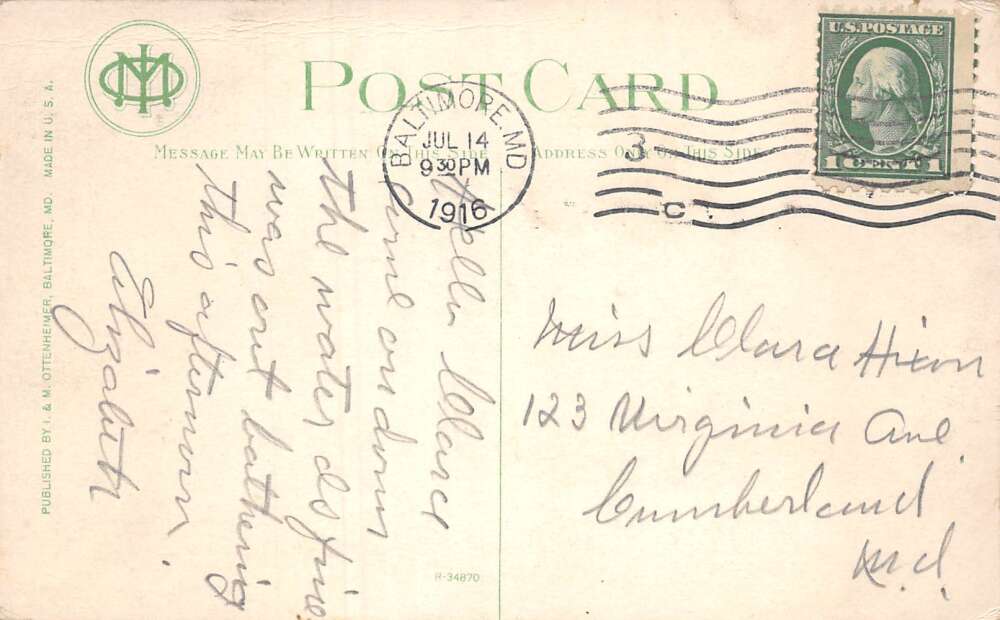 POST CARD
MESSAGE MAY BE WRITTEN ON THIS SIDE
ADDRESS ONLY ON THIS SIDE
BALTIMORE, MD.
JUL 14
9 30 PM
1916
3
C
U.S. POSTAGE
1 CENT 1
Hello Clara
come on down
the water is fine
was out bathering
this afternoon.
Elizabeth
Miss Clara Hixon
123 Virginia Ave
Cumberland
Md.
PUBLISHED BY I. & M. OTTENHEIMER, BALTIMORE, MD. MADE IN U. S. A.
R-34870